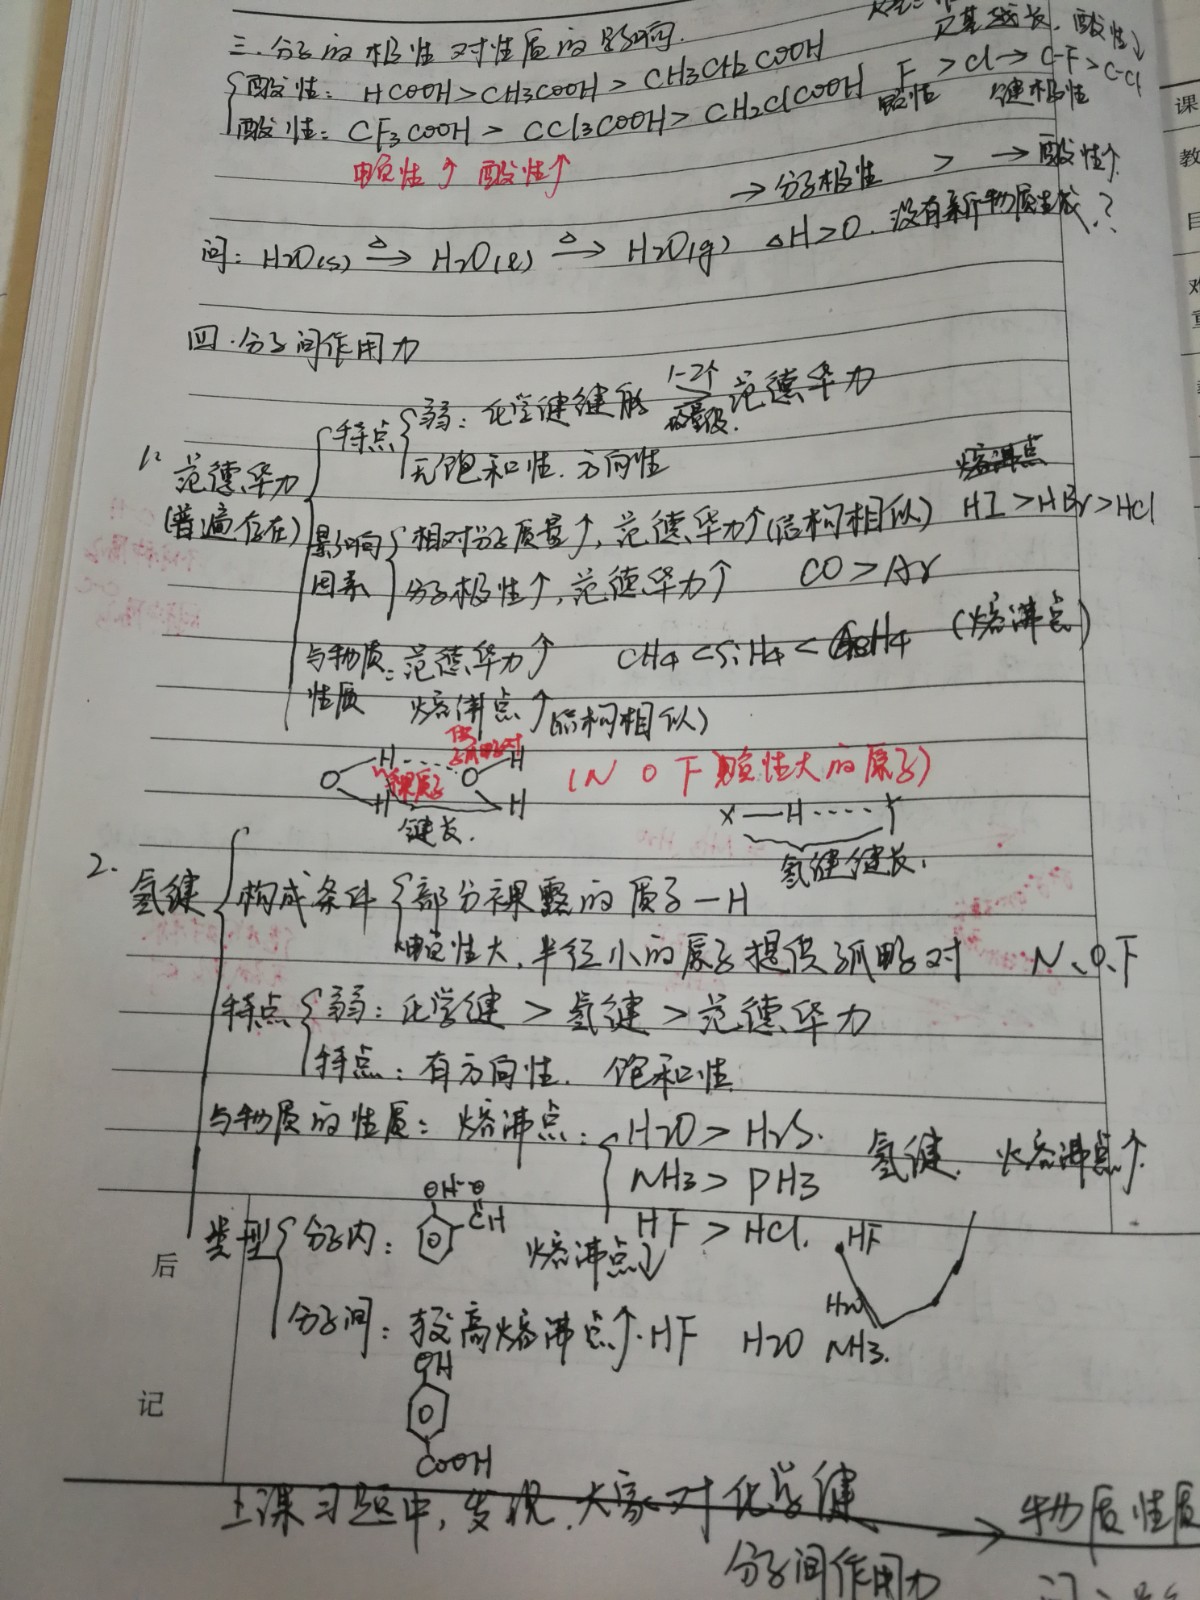 三.分子的极性对性质的影响.
烃基越长,酸性↓
酸性: HCOOH>CH3COOH>CH3CH2COOH
F>Cl→C-F>C-Cl
酸性: CF3COOH> CCl3COOH> CH2ClCOOH
键极性
电负性↑ 酸性↑
→分子极性 > →酸性↑.
问: H2O(s) △→ H2O(l) △→ H2O(g) △H>0.没有新物质生成?
四.分子间作用力
1. 范德华力
(普遍存在)
特点
弱: 化学键键能 1-2个数量级> 范德华力
无饱和性.方向性
熔沸点
影响因素
相对分子质量↑,范德华力↑(结构相似) HI>HBr>HCl
分子极性↑,范德华力↑ CO>Ar
与物质性质:
范德华力↑ CH4<SiH4<GeH4 (熔沸点)
熔沸点↑(结构相似)
O H H O H H
裸质子
(N O F 电负性大的原子)
键长.
X—H····Y
氢键键长.
2. 氢键
构成条件
部分裸露的质子-H
电负性大,半径小的原子提供孤电子对 N、O、F
特点
弱: 化学键>氢键>范德华力
特点: 有方向性. 饱和性
与物质的性质: 熔沸点:
H2O>H2S.
NH3>PH3 氢键. 熔沸点↑.
HF>HCl.
类型
分子内: OH O CH 熔沸点↓
HF
H2O
NH3.
分子间: 较高熔沸点↑.HF H2O
OH
COOH
后
记
上课习题中,发现.大家对化学键
分子间作用力
→ 物质性质
课
教
目
难
重